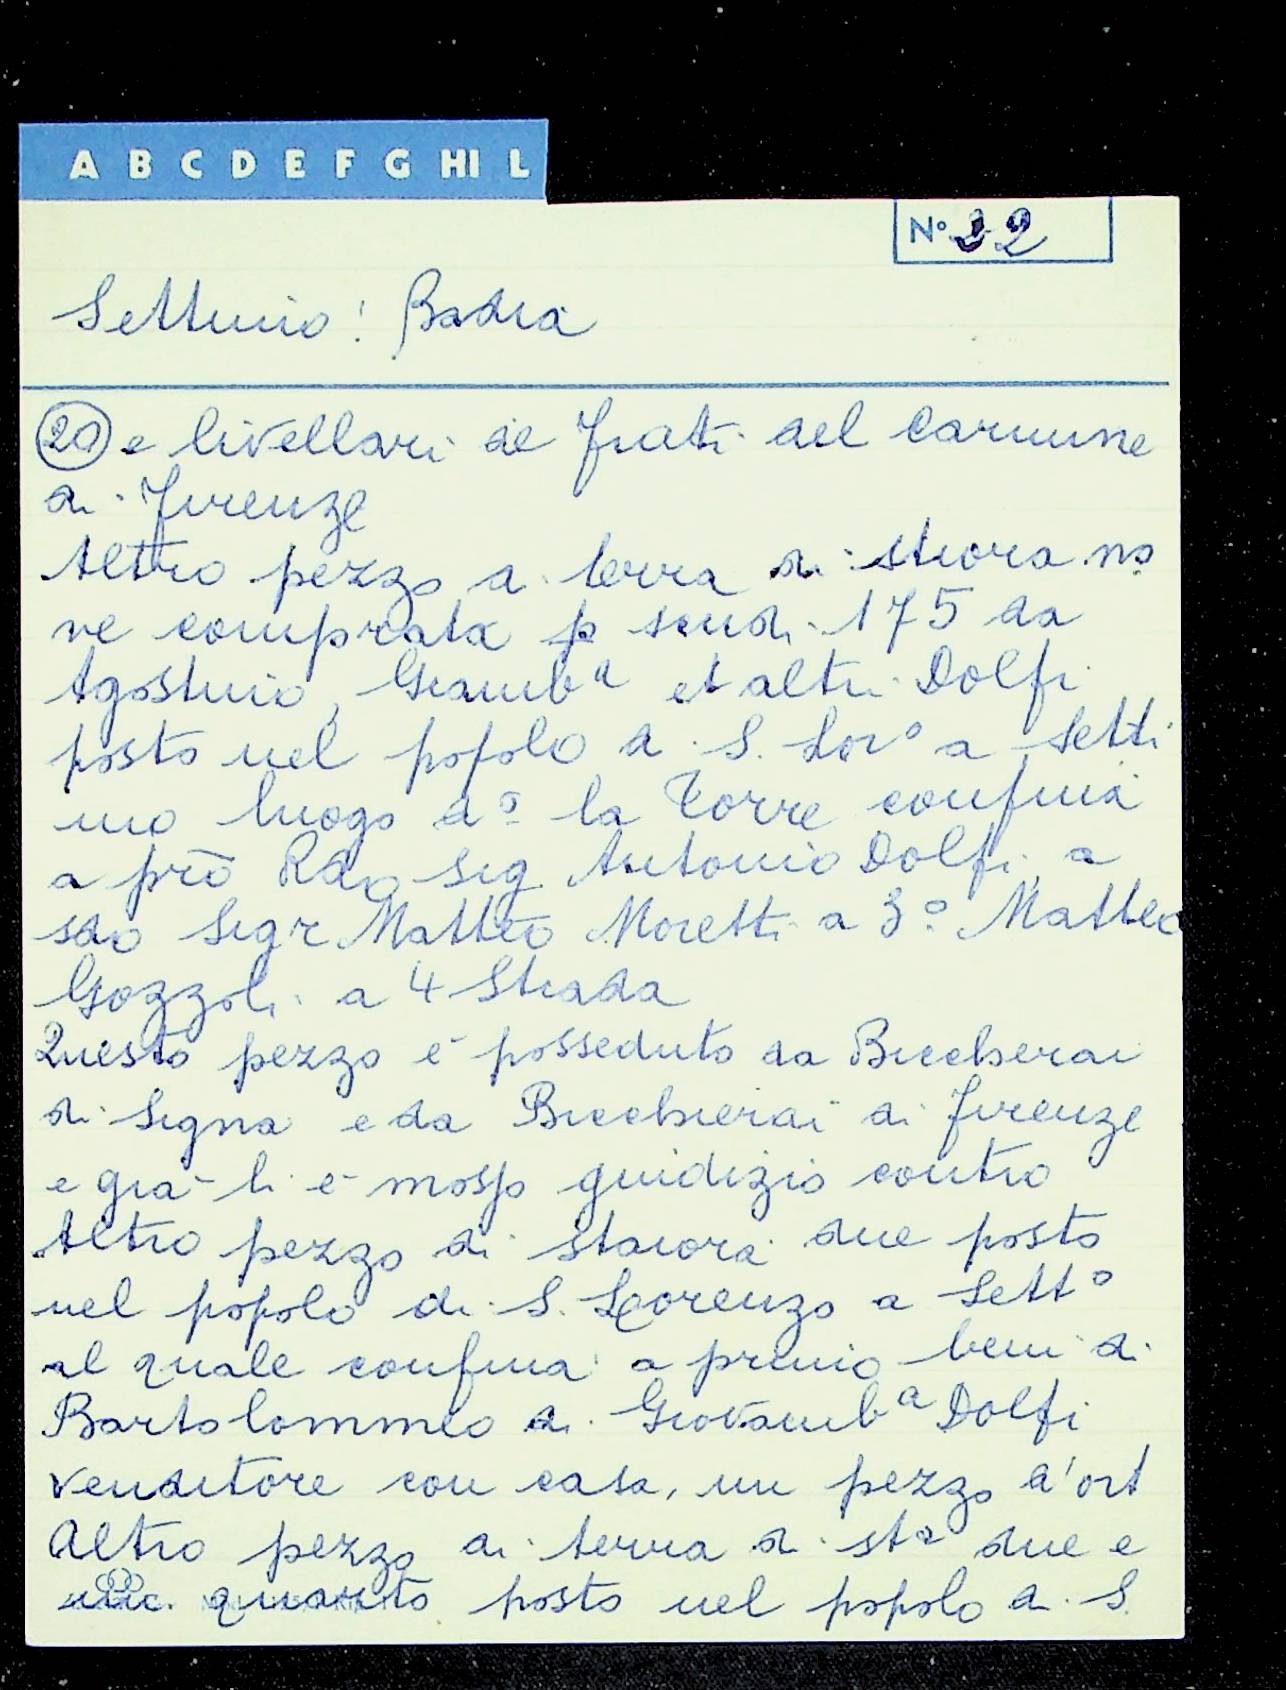 A B C D E F G HI L
N° 22
Settimo: Badia
20 e livellari de Frati del Carmine
di Firenze
Altro pezzo di terra di stiora no
ve comprata p scudi 175 da
Agostino, Giamb.a et altri Dolfi
posto nel popolo di S. Lor° a Setti
mo luogo d° la Torre confina
a prō Rdo Sig Antonio Dolfi a
sdo Sigr Matteo Moretti a 3° Matteo
Gozzoli a 4 Strada
Questo pezzo e posseduto da Biccherai
di Signa e da Bicchierai di Firenze
e già li e mosso giudizio contro
Altro pezzo di staiora due posto
nel popolo di S. Lorenzo a Sett°
al quale confina a primo beni di
Bartolommeo di Giovamb.a Dolfi
venditore con casa, un pezzo d'ort
Altro pezzo di terra di sta due e
un quarto posto nel popolo di S.